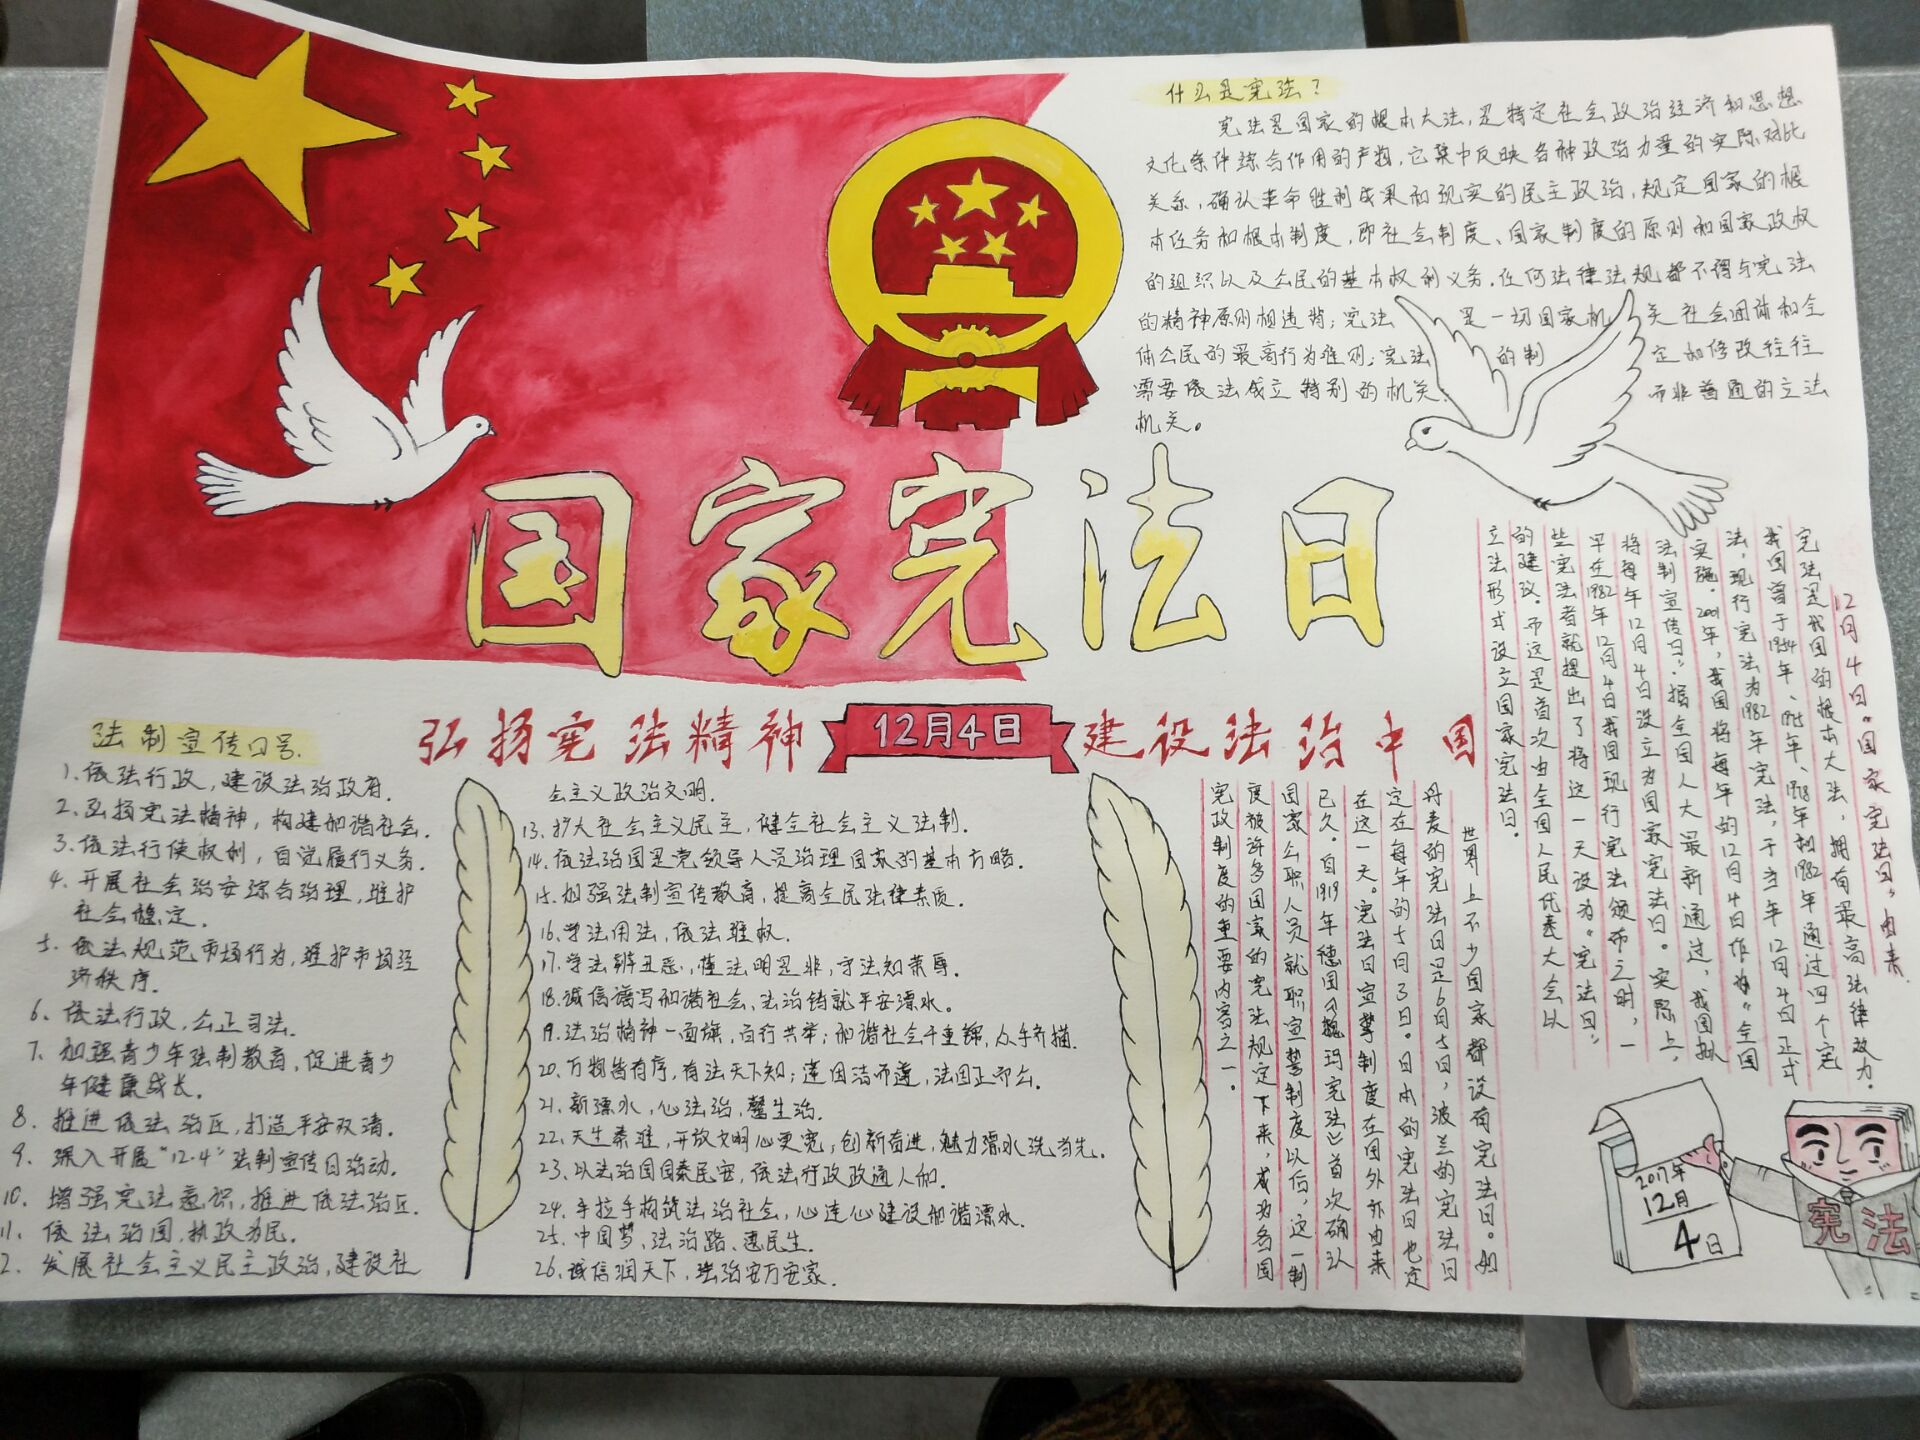 国家宪法日
弘扬宪法精神
12月4日
建设法治中国
什么是宪法?
宪法是国家的根本大法,是特定社会政治经济和思想
文化条件综合作用的产物,它集中反映各种政治力量的实际对比
关系,确认革命胜利成果和现实的民主政治,规定国家的根
本任务和根本制度,即社会制度、国家制度的原则和国家政权
的组织以及公民的基本权利义务.任何法律法规都不得与宪法
的精神原则相违背;宪法是一切国家机关社会团体和全
体公民的最高行为准则;宪法的制定和修改往往
需要依法成立特别的机关.而非普通的立法
机关。
12月4日“国家宪法日”由来
宪法是我国的根本大法,拥有最高法律效力.
我国曾于1954年、1975年、1978年和1982年通过四个宪
法,现行宪法为1982年宪法,于当年12月4日正式
实施.2001年,我国将每年的12月4日作为“全国
法制宣传日”.据全国人大最新通过,我国拟
将每年12月4日设立为国家宪法日。实际上,
早在1982年12月4日我国现行宪法颁布之时,一
些宪法者就提出了将这一天设为“宪法日”
的建议.而这是首次由全国人民代表大会以
立法形式设立国家宪法日.
世界上不少国家都设有宪法日。如
丹麦的宪法日是6月5日,波兰的宪法日
定在每年的5月3日。日本的宪法日也定
在这一天。宪法日宣誓制度在国外亦由来
已久。自1919年德国《魏玛宪法》首次确认
国家公职人员就职宣誓制度以后,这一制
度被许多国家的宪法规定下来,成为各国
宪政制度的重要内容之一.
法制宣传口号.
1.依法行政,建设法治政府.
2.弘扬宪法精神,构建和谐社会.
3.依法行使权利,自觉履行义务.
4.开展社会治安综合治理,维护
社会稳定.
5.依法规范市场行为,维护市场经
济秩序.
6.依法行政,公正司法.
7.加强青少年法制教育,促进青少
年健康成长.
8.推进依法治区,打造平安双清.
9.深入开展“12·4”法制宣传日活动.
10.增强宪法意识,推进依法治区.
11.依法治国,执政为民.
2.发展社会主义民主政治,建设社
会主义政治文明.
13.扩大社会主义民主,健全社会主义法制.
14.依法治国是党领导人员治理国家的基本方略.
15.加强法制宣传教育,提高全民法律素质.
16.学法用法,依法维权.
17.学法辨丑恶,懂法明是非,守法知荣辱.
18.诚信谱写和谐社会、法治铸就平安溧水.
19.法治精神一面旗,百行共举;和谐社会千重锦,众手齐描.
20.万物皆有序,有法天下知;莲因洁而遵,法因正而公.
21.新溧水,心法治,馨生活.
22.天生秦淮,开放文明心更宽,创新奋进,魅力溧水洗当先.
23.以法治国国泰民安,依法行政政通人和.
24.手拉手构筑法治社会,心连心建设和谐溧水.
25.中国梦、法治路、惠民生.
26.诚信润天下,法治安万家.
2017年
12月
4日
宪法